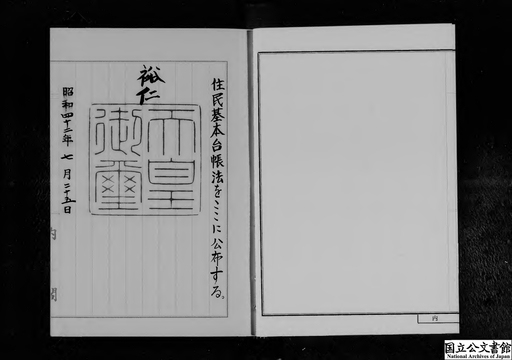 住民基本台帳法をここに公布する。
裕仁
天皇
御璽
昭和四十二年七月二十五日
内閣
内
国立公文書館
National Archives of Japan